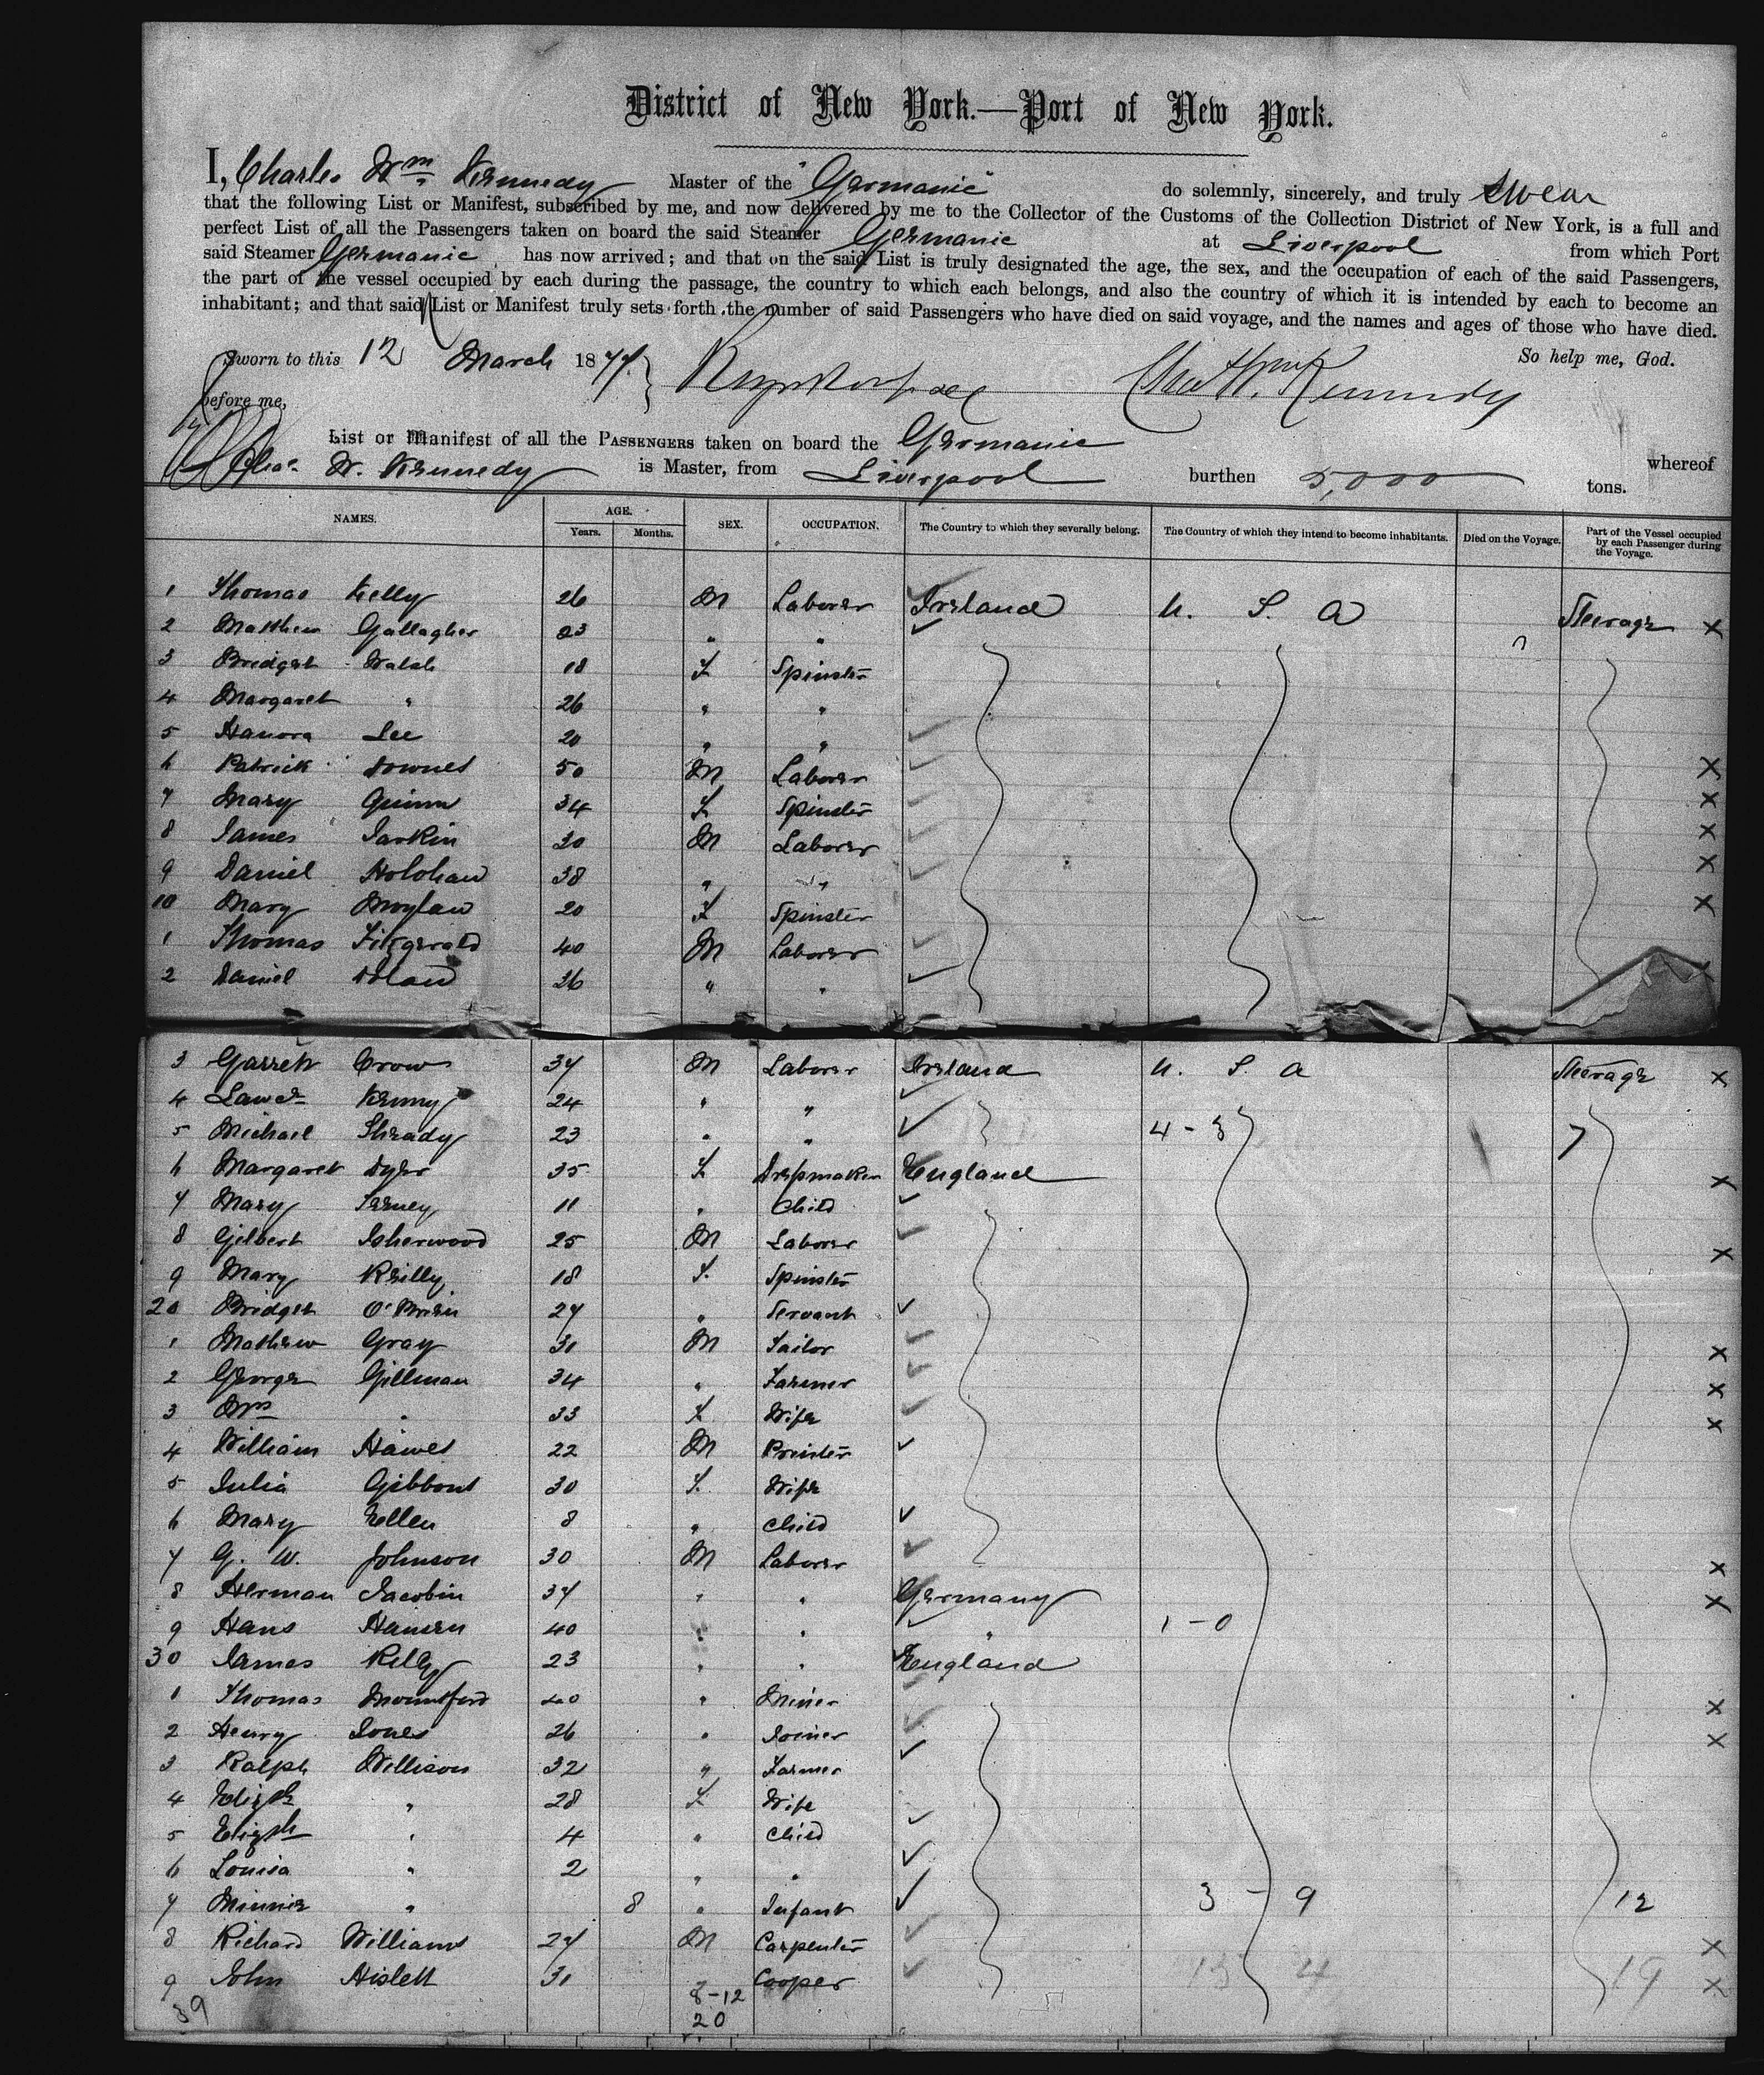 District of New York.—Port of New York.
I, Charles Wm Kennedy Master of the "Germanic" do solemnly, sincerely, and truly swear
that the following List or Manifest, subscribed by me, and now delivered by me to the Collector of the Customs of the Collection District of New York, is a full and
perfect List of all the Passengers taken on board the said Steamer Germanic at Liverpool from which Port
said Steamer Germanic has now arrived; and that on the said List is truly designated the age, the sex, and the occupation of each of the said Passengers,
the part of the vessel occupied by each during the passage, the country to which each belongs, and also the country of which it is intended by each to become an
inhabitant; and that said List or Manifest truly sets forth the number of said Passengers who have died on said voyage, and the names and ages of those who have died.
So help me, God.
Sworn to this 12 March 1877
before me, Chas Wm Kennedy
List or Manifest of all the PASSENGERS taken on board the Germanic whereof
Chas. W. Kennedy is Master, from Liverpool burthen 5,000 tons.
NAMES. AGE. Years. Months. SEX. OCCUPATION. The Country to which they severally belong. The Country of which they intend to become inhabitants. Died on the Voyage. Part of the Vessel occupied by each Passenger during the Voyage.
1 Thomas Kelly 26 M Laborer Ireland U. S. A Steerage X
2 Matthew Gallagher 23 " "
3 Bridget Walsh 18 F Spinster
4 Margaret " 26 " "
5 Hanora Lee 20 " "
6 Patrick Downes 50 M Laborer X
7 Mary Quinn 34 F Spinster X
8 James Larkin 30 M Laborer X
9 Daniel Holohan 38 " " X
10 Mary Moylan 20 F Spinster X
1 Thomas Fitzgerald 40 M Laborer
2 Daniel Nolan 26 " "
3 Garrett Crow 37 M Laborer Ireland U. S. A Steerage X
4 Lawce Kenny 24 " "
5 Michael Shrady 23 " " 4-3 7
6 Margaret Dyer 35 F Dressmaker England X
7 Mary Tierney 11 " Child
8 Gilbert Isherwood 25 M Laborer X
9 Mary Reilly 18 F. Spinster
20 Bridget O'Brien 27 " Servant
1 Mathew Gray 31 M Tailor X
2 George Gillman 34 " Farmer X
3 Mrs " 33 F Wife X
4 William Hawes 22 M Printer
5 Julia Gibbons 30 F. Wife
6 Mary Ellen 8 " Child
7 G. W. Johnson 30 M Laborer X
8 Herman Jacobin 37 " " Germany X
9 Hans Hansen 40 " " " 1-0
30 James Kelly 23 " " England
1 Thomas Mountford 40 " Miner X
2 Henry Jones 26 " Joiner X
3 Ralph Willison 32 " Farmer
4 Elizth " 28 F Wife
5 Elizth " 4 " Child
6 Louisa " 2 " "
7 Minnie " 8 " Infant 3-9 12
8 Richard Williams 27 M Carpenter X
9 John Hislett 31 Cooper 13 4 19 X
39 8-12
20